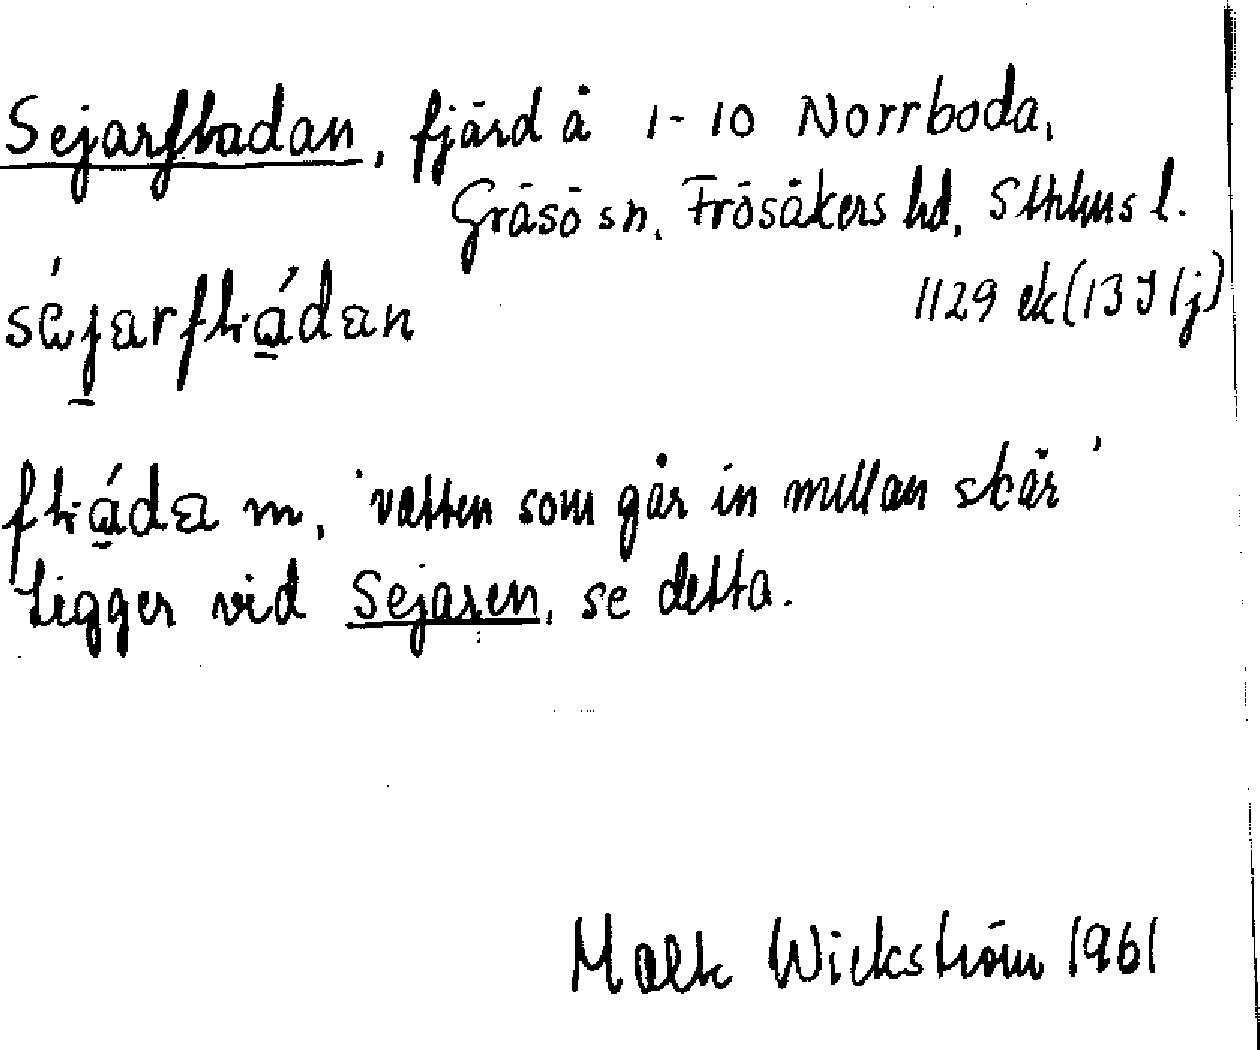 Sejarfladan, fjärd å 1-10 Norrboda,
Gräsö sn, Frösåkers hd, Sthlms l.
1129 ek (13 I 1j)
séjarfládan
fláda m, 'vatten som går in mellan skär'
Ligger vid Sejaren, se detta.
Wickström 1961